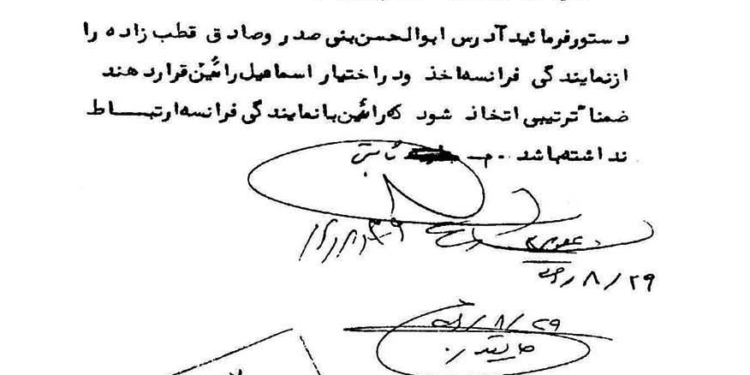 دستورفرمائیدآدرس ابوالحسن‌بنی صدر وصادق قطب زاده را
ازنمایندگی فرانسه‌اخذ ودراختیار اسماعیل‌رائین‌قراردهند
ضمنا"ترتیبی اتخاذ شود که‌رائین‌بانمایندگی فرانسه‌ارتباط
نداشته‌باشد .م- ثابتی
۸/۲۹
۸/۲۹